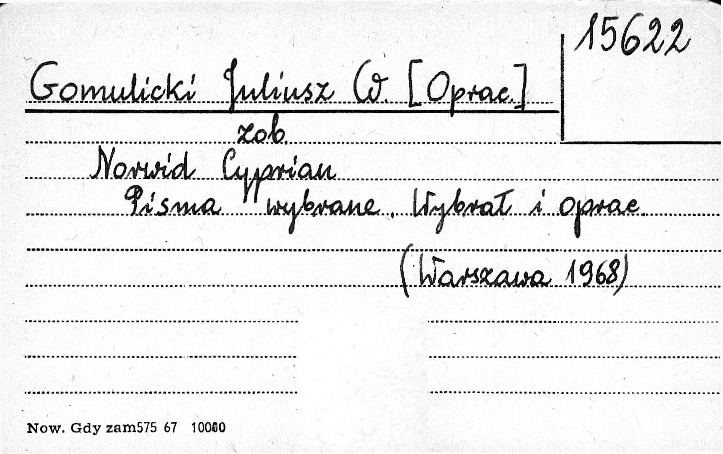 15622
Gomulicki Juliusz W. [Oprac.]
zob.
Norwid Cyprian
Pisma wybrane. Wybrał i oprac.
(Warszawa 1968)
Now. Gdy zam575 67 10000